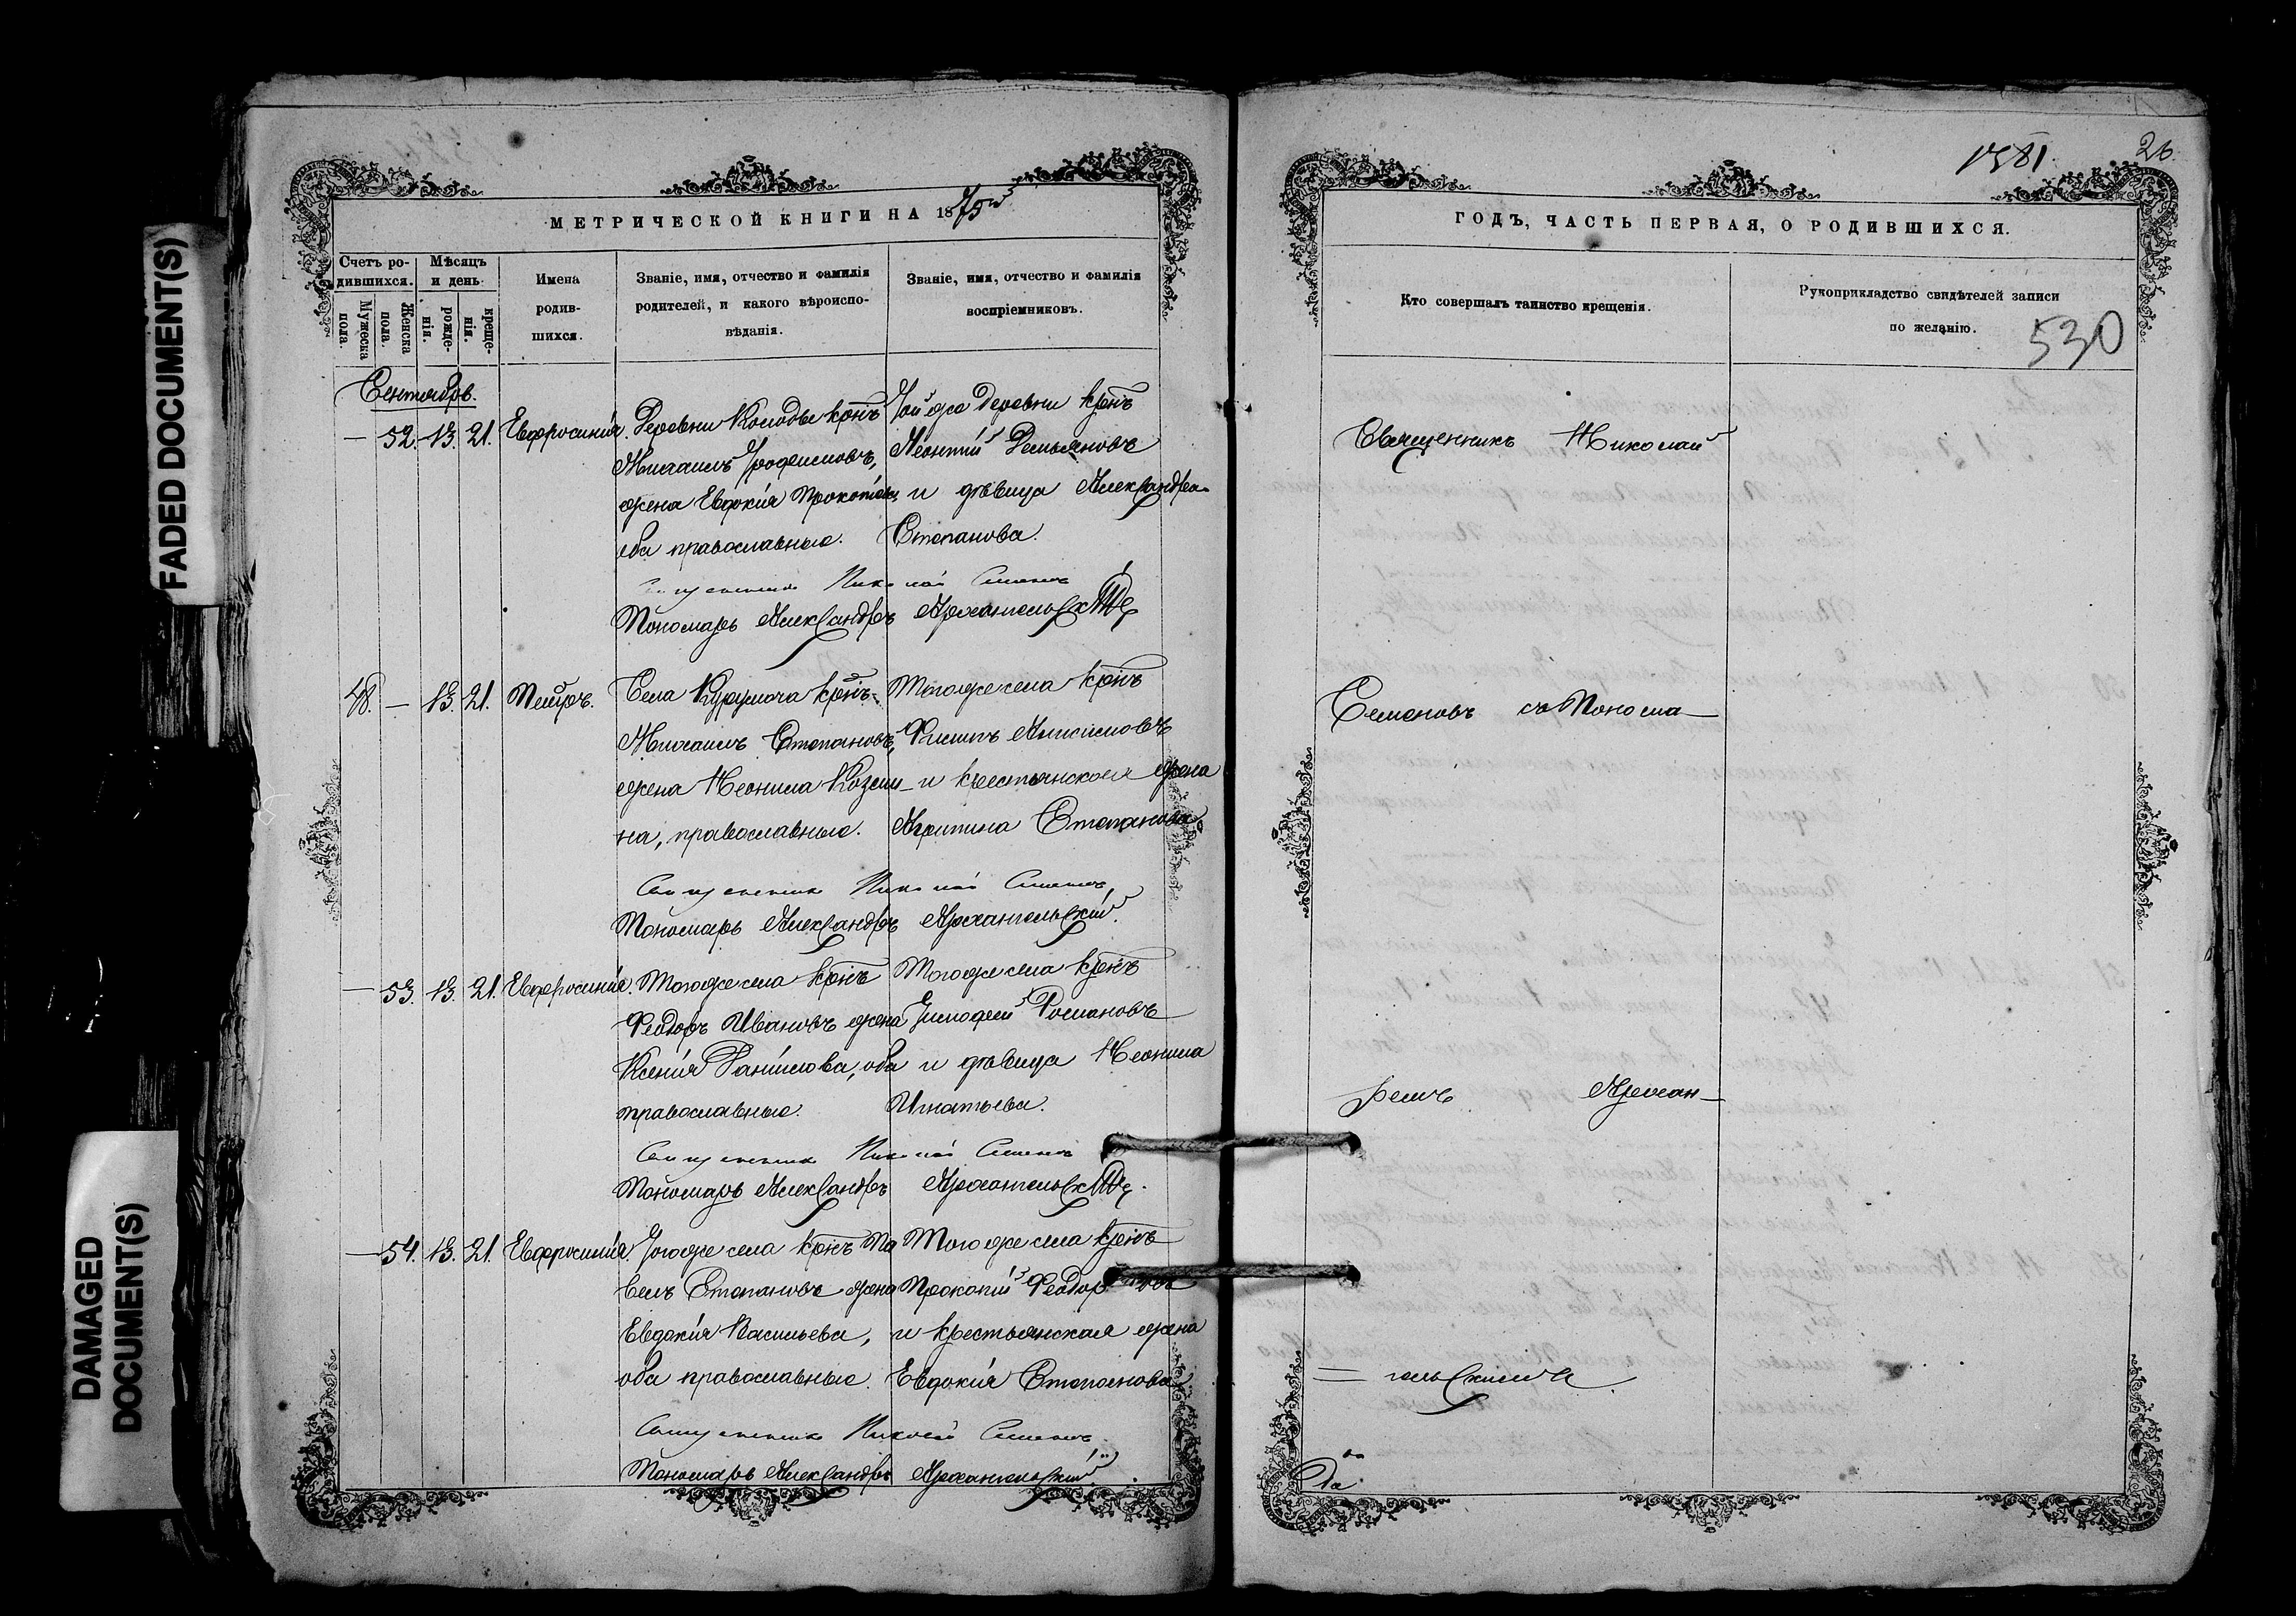 FADED DOCUMENT(S)
DAMAGED
DOCUMENT(S)
МЕТРИЧЕСКОЙ КНИГИ НА 1875й
Счетъ ро-
дившихся.
Мужеска
пола.
Женска
пола.
Мѣсяцъ
и день
рожде-
нія.
креще-
нія.
Имена
родив-
шихся.
Званіе, имя, отчество и фамилія
родителей, и какого вѣроиспо-
вѣданія.
Званіе, имя, отчество и фамилія
воспріемниковъ.
Сентябрь.
— 52. 13. 21. Евфросинія.
Деревни крнъ
Михаилъ Трофимовъ,
жена Евдокія Прокопіева
оба православные.
Той же деревни крнъ
Леонтій Демьяновъ
и дѣвица Александра
Степанова.
Священникъ Николай Семеновъ
Пономарь Александръ Архангельскій
48. — 13. 21. Петръ.
Села Курумоча крнъ
Михаилъ Степановъ,
жена Неонила Козьми-
на, православные.
Тогоже села крнъ
Филипъ Анисимовъ
и крестьянская жена
Агрипина Степанова
Священникъ Николай Семеновъ
Пономарь Александръ Архангельскій.
— 53. 13. 21. Евфросинія.
Тогоже села крнъ
Феодоръ Ивановъ жена
Ксенія Данилова, оба
православные.
Тогоже села крнъ
Тимофей Романовъ
и дѣвица Неонила
Игнатьева.
Священникъ Николай Семеновъ
Пономарь Александръ Архангельскій.
— 54. 13. 21. Евфросинія.
Тогоже села крнъ Па
велъ Степановъ жена
Евдокія Васильева,
оба православные.
Тогоже села крнъ
Прокопій Феодоровъ
и крестьянская жена
Евдокія Степанова
Священникъ Николай Семеновъ
Пономарь Александръ Архангельскій.
1581. 26.
ГОДЪ, ЧАСТЬ ПЕРВАЯ, О РОДИВШИХСЯ.
Кто совершалъ таинство крещенія.
Рукоприкладство свидѣтелей записи
по желанію.
530
Священникъ Николай
Семеновъ съ Понома-
ремъ Архан-
= гельскимъ.